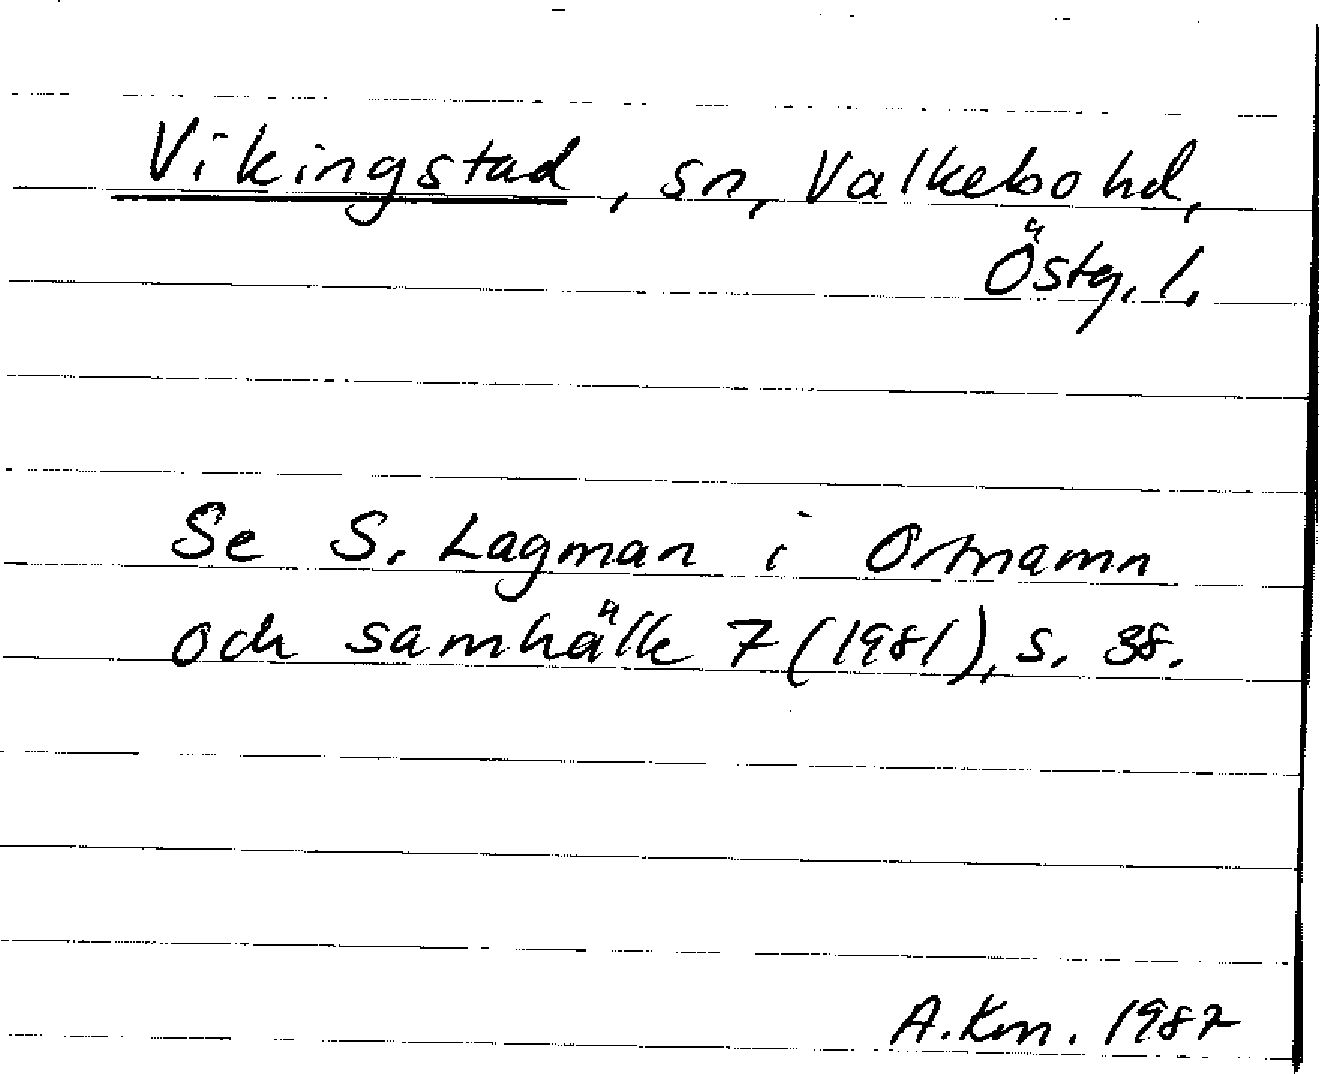 Vikingstad, sn, Valkebo hd,
Östg. l.
Se S. Lagman i Ortnamn
och samhälle 7 (1981), s. 38.
A.Km. 1987